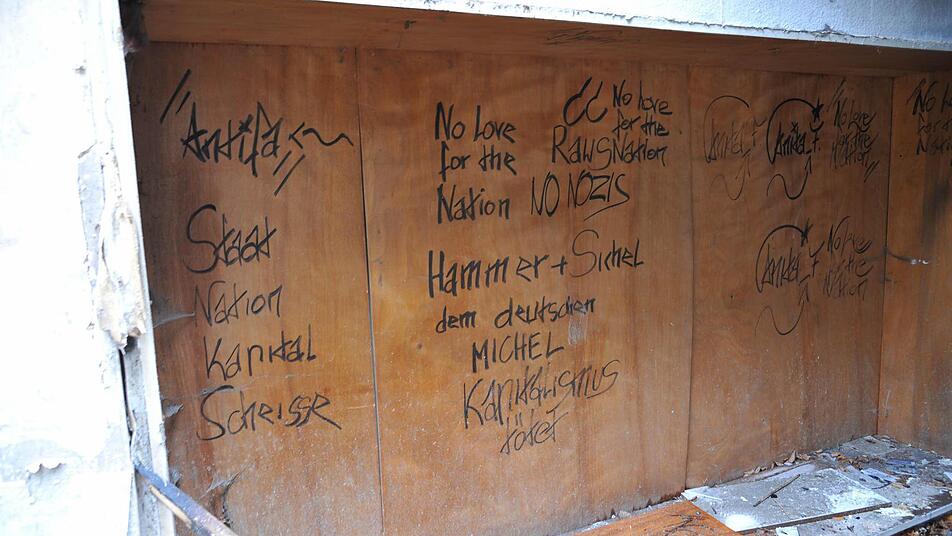 Antifa
Staat
Nation
Kapital
Scheisse
No Love
for the
Nation
No Love
for the
Nation
NO NOZIS
Hammer + Sichel
dem deutschen
MICHEL
Kapitalismus
tötet
No Love
for the
Nation
No Love
for the
Nation
No
for